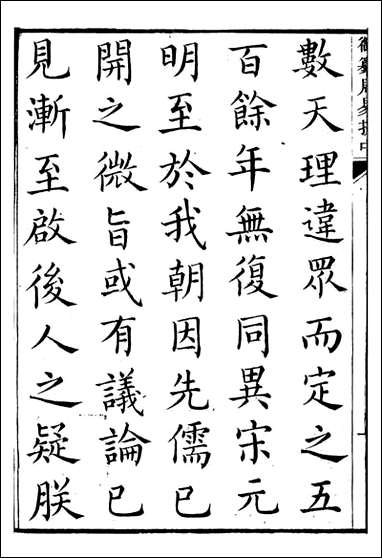 數天理違眾而定之五
百餘年無復同異宋元
明至於我朝因先儒已
開之微旨或有議論已
見漸至啟後人之疑朕